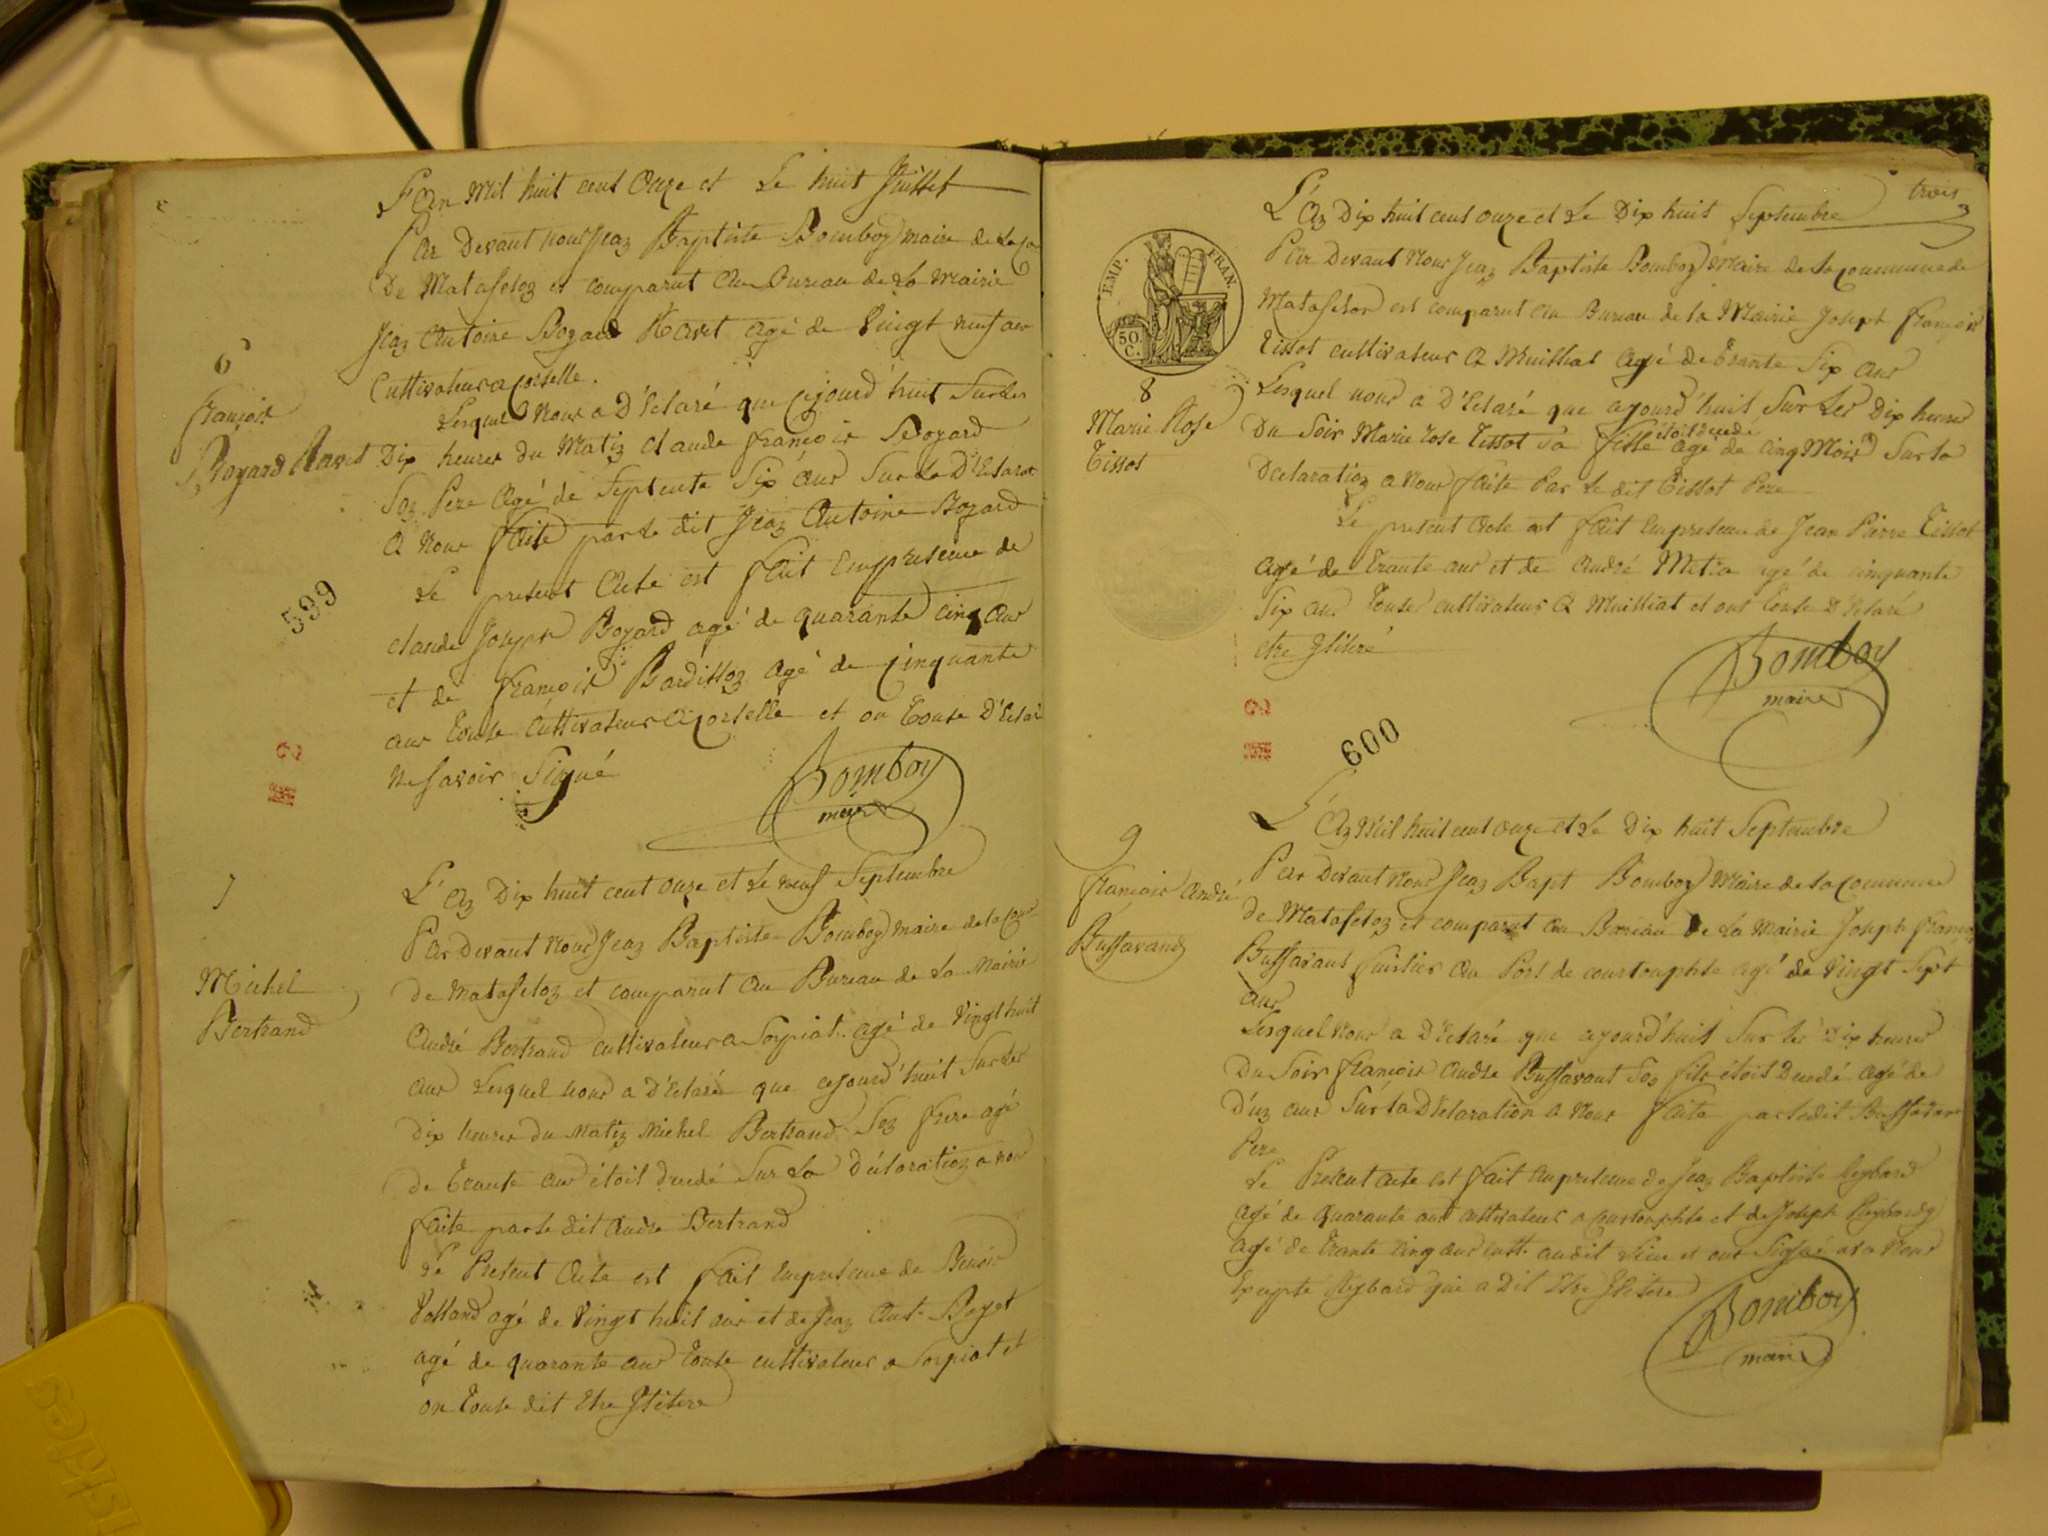 L'an Mil huit cent Onze et Le huit Juillet
Par Devant nous Jeaz Baptiste Bomboy maire de La co
De Matafeloz et comparut Au Bureau de La Mairie
Jeaz Antoine Bogard Ravet agé de Vingt neuf an
Cultivateur a Corselle.
Lesquel nous a D'Eclaré que cejourd'huit Sur les
Dix heures du Matiz claude françois Bogard
Soz Pere agé de Septente Six Ans Sur La D'Eclarat
a nous faite par Le dit Jeaz Antoine Bogard
Le present Acte est fait Empresence de
claude Joseph Bogard agé de quarante cinq Ans
et de françois Bardissoz agé de Cinquante
ans Touse Cultivateur a Corselle et on Touse D'Eclar
Ne savoir Signé
Bomboy
maire
6
françois
Bogard Ravet
599
2
L'az Dix huit cent onze et Le neuf Septembre
Par Devant Nous Jeaz Baptiste Bomboy maire de la Com
de Matafeloz et comparut au Bureau de La Mairie
André Bertrand cultivateur a Sorpiat agé de Vingt huit
ans Lesquel nous a D'Eclaré que cejourd'huit Sur Les
dix heures du Matiz Michel Bertrand Soz frere agé
de Trante ans étoit decedé Sur La Declaratioz a nou
faite par le dit Andre Bertrand
Le Present Acte est fait Empresence de Benoi
Volland agé de Vingt huit ans et de Jeaz Ant. Boget
agé de quarante ans Touse cultivateur a Sorpiat et
on Touse dit Etre Jlitere
7
Michel
Bertrand
trois
L'Az Dix huit cent onze et Le Dix huit Septembre
Par Devant Nous Jeaz Baptiste Bomboy Maire de la commune de
Matafelon est comparut au Bureau de la Mairie Joseph françois
Tissot cultivateur a Muilliat agé de Trante Six ans
Lesquel nous a D'Eclaré que ajourd'huit Sur Les Dix heures
Du Soir Marie rose Tissot Sa fille étoit decedé agé de cinq Mois Sur la
Declaratioz a Nous faite Par Le dit Tissot Pere
Le present acte est fait Empresence de Jean Pierre Tissot
agé de Trante ans et de André Metra agé de cinquante
Six ans Touse cultivateur a Muilliat et ont Touse D'Eclaré
etre Jlitéré
Bomboy
maire
EMP. FRAN.
50
C.
8
Marie Rose
Tissot
2
600
L'Az Mil huit cent onze et Le Dix huit Septembre
Par Devant Nous Jeaz Bapt Bomboy Maire de la Commune
de Matafeloz et comparut au Bureau de La Mairie Joseph françoi
Buffavant au Port de courtouphle agé de Vingt Sept
ans
Lesquel Nous a D'Eclaré que ajourd'huit Sur les Dix heures
Du Soir françois Andre Buffavant Soz fils étoit Decedé agé de
D'uz ans Sur La D'Eclaration a Nous faite par ledit Buffavan
Pere
Le Present acte est fait Empresence de Jeaz Baptiste Reybard
agé de quarante ans cultivateur a courtouphle et de Joseph
agé de Trante cinq ans cult. audit Lieu et ont Signé avec Nous
Excepté Reybard qui a Dit Etre Jlitere
Bomboy
maire
9
françois André
Buffavand